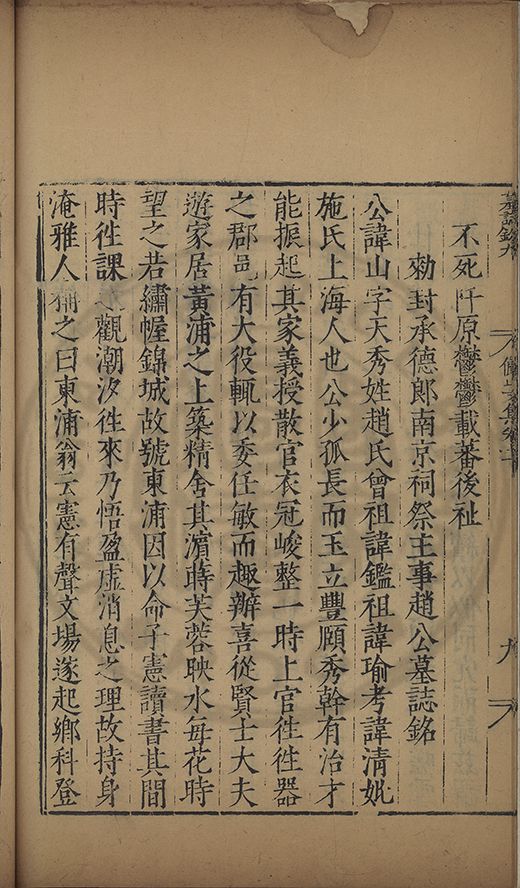 不死阡原鬱鬱載蕃後祉
勑封承德郎南京祠祭主事趙公墓誌銘
公諱山字天秀姓趙氏曾祖諱鑑祖諱瑜考諱淸妣
施氏上海人也公少孤長而玉立豐頤秀幹有治才
能振起其家義授散官衣冠峻整一時上官徃徃器
之郡邑有大役輒以委任敏而趣辦喜從賢士大夫
遊家居黃浦之上築精舍其濵蒔芙蓉映水每花時
望之若繡幄錦城故號東浦因以命子憲讀書其間
時徃課之觀潮汐徃來乃悟盈虛消息之理故持身
淹雅人稱之曰東浦翁云憲有聲文場遂起鄉科登
墓誌銘九
儼山文集卷
九